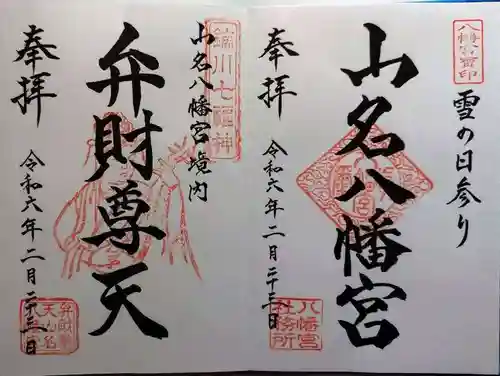 八幡宮
雪の日参り
山名八幡宮
奉拝
令和六年二月二十三日
八幡宮
社務所
鏑川七福神
山名八幡宮境内
弁財尊天
奉拝
令和六年二月二十三日